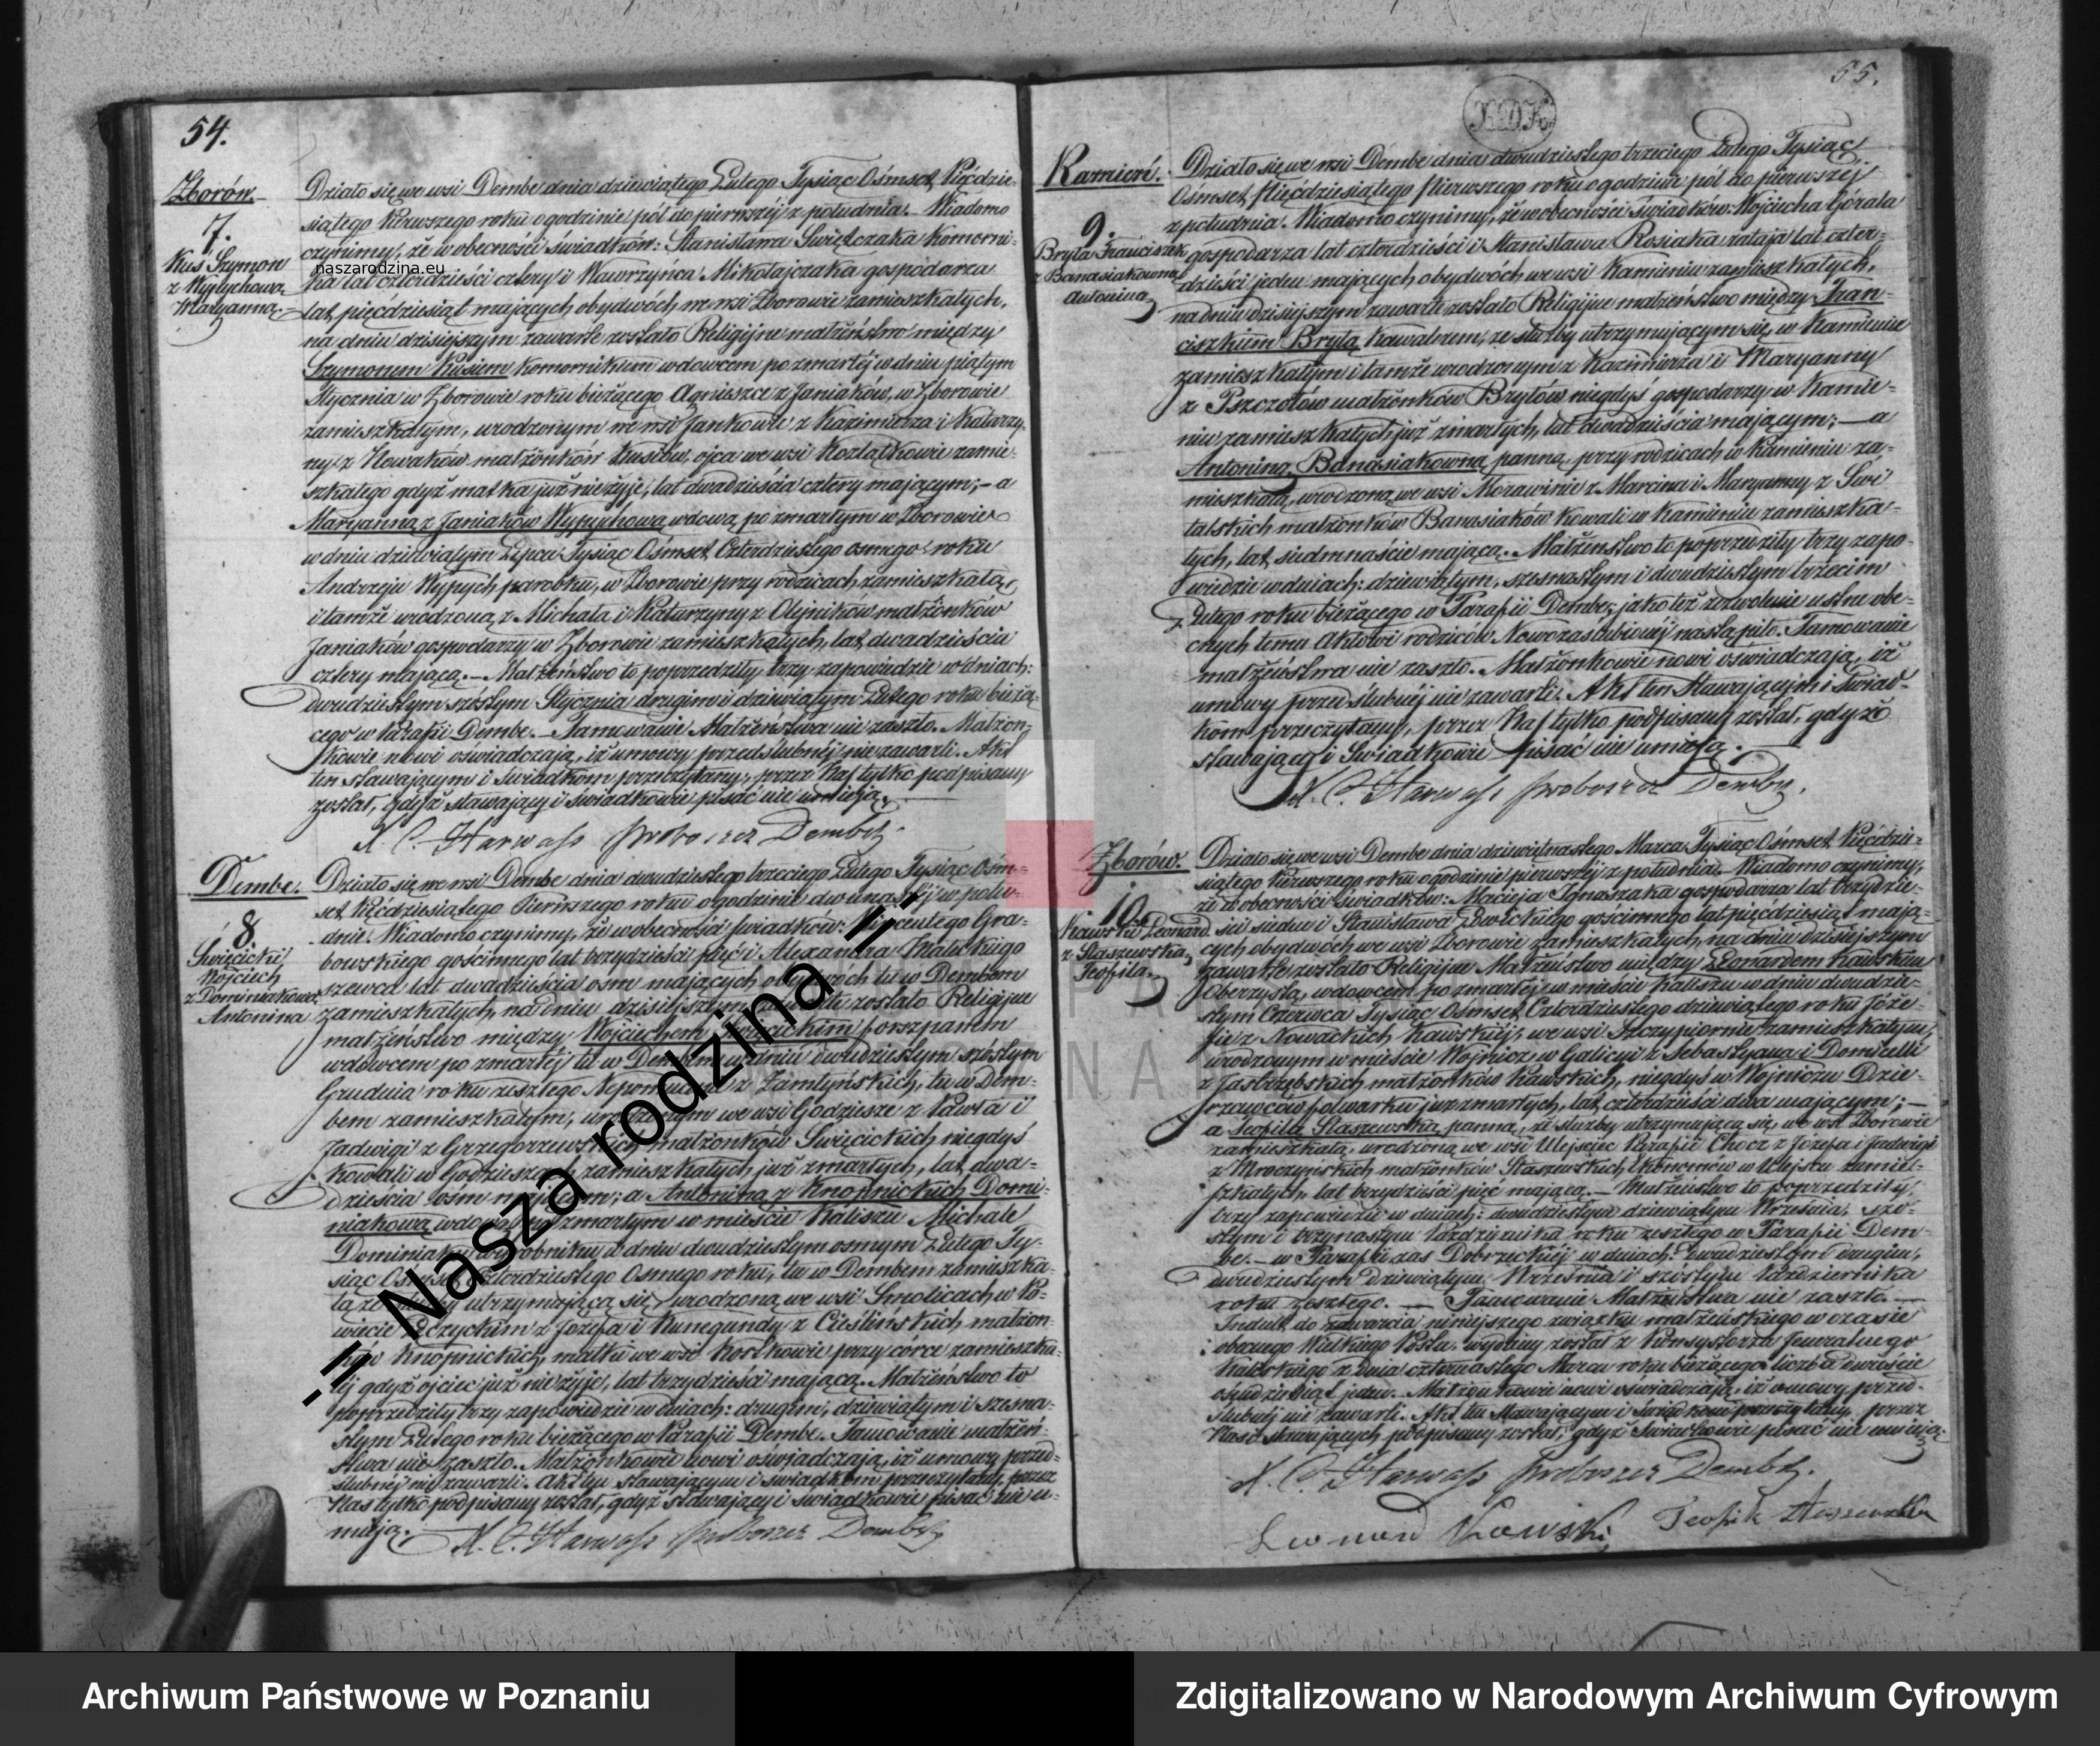 54.
Zborów.
7.
Kuś Szymon
z Wypychową
Maryanną.
Działo się we wsi Dembe dnia dziewiątego Lutego Tysiąc Ośmset Pięćdzie-
siątego Pierwszego roku o godzinie pół do pierwszej z południa. Wiadomo
czynimy, że w obecności świadków: Stanisława Świętczaka Komorni-
ka lat czterdzieści cztery i Wawrzyńca Mikołajczaka gospodarza
lat pięćdziesiąt mających obydwóch we wsi Zborowie zamieszkałych,
na dniu dzisiejszym zawarte zostało Religijne małżeństwo między
Szymonem Kusiem komornikiem wdowcem po zmarłéj w dniu piątym
Stycznia w Zborowie roku bieżącego Agnieszce z Janiaków, w Zborowie
zamieszkałym, urodzonym we wsi Jankowie z Kazimierza i Katarzy-
ny z Nowaków małżonków Kusiów, ojca we wsi Koźlątkowie zamie-
szkałego gdyż matka już nie żyje, lat dwadzieścia cztery mającym; – a
Maryanną z Janiaków Wypychową wdową po zmarłym w Zborowie
w dniu dziewiątym Lipca Tysiąc Ośmset Czterdziestego osmego roku
Andrzeju Wypych parobku, w Zborowie przy rodzicach zamieszkałą,
i tamże urodzoną z Michała i Katarzyny z Olejników małżonków
Janiaków gospodarzy w Zborowie zamieszkałych, lat dwadzieścia
cztery mającą. – Małżeństwo to poprzedziły trzy zapowiedzie w dniach:
dwudziestym szóstym Stycznia drugim i dziewiątym Lutego roku bieżą-
cego w Parafii Dembe. – Tamowanie Małżeństwa nie zaszło. Małżon-
kowie nowi oświadczają, iż umowy przedślubnéj nie zawarli. Akt
ten stawającym i świadkom przeczytany, przez Nas tylko podpisany
został, gdyż stawający i świadkowie pisać nie umieją.
X. C. Harwass proboszcz Dembsk.
Dembe.
8
Święcicki
Wojciech
z Dominiakową
Antoniną
Działo się we wsi Dembe dnia dwudziestego trzeciego Lutego Tysiąc Ośm-
set Pięćdziesiątego Pierwszego roku o godzinie dwunastéj w połu-
dnie. Wiadomo czynimy, że w obecności świadków: Wincentego Gra-
bowskiego gościnnego lat trzydzieści pięć i Alexandra Małeckiego
szewca lat dwadzieścia osm mających obydwóch tu w Dembem
zamieszkałych, na dniu dzisiejszym zawarte zostało Religijne
małżeństwo między Wojciechem Święcickim forszpanem
wdowcem po zmarłéj tu w Dembem w dniu dwudziestym szóstym
Grudnia roku zeszłego Nepomucenie z Zamłyńskich, tu w Dem-
bem zamieszkałym, urodzonym we wsi Godziesze z Pawła i
Jadwigi z Grzegorzewskich małżonków Święcickich niegdyś
kowali w Godzieszach zamieszkałych już zmarłych, lat dwa-
dzieścia ośm mającym; a Antoniną z Knopnickich Domi-
niakową wdową po zmarłym w mieście Kaliszu Michale
Dominiaku wyrobniku w dniu dwudziestym osmym Lutego Ty-
siąc Ośmset Czterdziestego Osmego roku, tu w Dembem zamieszka-
łą ze służby utrzymującą się, urodzoną we wsi Smolicach w Po-
wiecie Łęczyckim z Józefa i Kunegundy z Cieślińskich małżon-
ków Knopnickich, matki we wsi Kościkowie przy córce zamieszka-
łéj gdyż ojciec już nie żyje, lat trzydzieści mającą. Małżeństwo to
poprzedziły trzy zapowiedzie w dniach: drugim, dziewiątym i szesna-
stym Lutego roku bieżącego w Parafii Dembe. Tamowanie małżeń-
stwa nie zaszło. Małżonkowie nowi oświadczają, iż umowy przed-
ślubnéj nie zawarli. Akt ten stawającym i świadkom przeczytany, przez
Nas tylko podpisany został, gdyż stawający i świadkowie pisać nie u-
mieją. X. C. Harwass proboszcz Dembsk.
55.
Kamień.
9.
Bryła Franciszek
z Banasiakówną
Antoniną
Działo się we wsi Dembe dnia dwudziestego trzeciego Lutego Tysiąc
Ośmset Pięćdziesiątego Pierwszego roku o godzinie pół do pierwszéj
z południa. Wiadomo czynimy, że w obecności świadków: Wojciecha Górala
gospodarza lat czterdzieści i Stanisława Rosiaka rataja lat czter-
dzieści jeden mających obydwóch we wsi Kamieniu zamieszkałych,
na dniu dzisiejszym zawarte zostało Religijne małżeństwo między Fran-
ciszkiem Bryłą Kawalerem, ze służby utrzymującym się, w Kamieniu
zamieszkałym i tamże urodzonym z Kazimierza i Maryanny
z Pszczołów małżonków Bryłów niegdyś gospodarzy w Kamie-
niu zamieszkałych już zmarłych, lat dwadzieścia mającym; – a
Antoniną Banasiakowną panną, przy rodzicach w Kamieniu za-
mieszkałą, urodzoną we wsi Morawinie z Marcina i Maryanny z Świ
talskich małżonków Banasiaków kowali w Kamieniu zamieszka-
łych, lat siedmnaście mającą. Małżeństwo to poprzedziły trzy zapo-
wiedzie w dniach: dziewiątym, szesnastym i dwudziestym trzecim
Lutego roku bieżącego w Parafii Dembe; jako też zezwolenie ustne obe-
cnych temu Aktowi rodziców Nowozaślubionéj nastąpiło. Tamowanie
małżeństwa nie zaszło. Małżonkowie nowi oświadczają, iż
umowy przed-ślubnéj nie zawarli. Akt ten stawającym i świad-
kom przeczytany, przez Nas tylko podpisany został, gdyż
stawający i świadkowie pisać nie umieją.
X. C. Harwass proboszcz Dembsk.
Zborów.
10.
Kawski Leonard
z Staszewską
Teofilą.
Działo się we wsi Dembe dnia dziewiętnastego Marca Tysiąc Ośmset Pięćdzie-
siątego Pierwszego roku o godzinie pierwszéj z południa. Wiadomo czynimy,
że w obecności świadków: Macieja Ignaszaka gospodarza lat trzydzie-
ści siedm i Stanisława Łowickiego gościnnego lat pięćdziesiąt mają-
cych obydwóch we wsi Zborowie zamieszkałych, na dniu dzisiejszym
zawarte zostało Religijne Małżeństwo między Leonardem Kawskim
Oberzystą, wdowcem po zmarłéj w mieście Kaliszu w dniu dwudzie-
stym Czerwca Tysiąc Ośmset Czterdziestego dziewiątego roku Józe-
fie z Nowackich Kawskiéj, we wsi Szczypiornie zamieszkałym,
urodzonym w mieście Wojnicz w Galicyi z Sebastyana i Domicelli
z Jastrzębskich małżonków Kawskich, niegdyś w Wojniczu Dzie-
rzawców folwarku już zmarłych, lat czterdzieści dwa mającym; –
a Teofilą Staszewską panną, ze służby utrzymującą się, we wsi Zborowie
zamieszkałą, urodzoną we wsi Ulejsiec Parafii Chocz z Józefa i Jadwigi
z Mroczyńskich małżonków Staszewskich Ekonomów w Ulejscu zamie-
szkałych, lat trzydzieści pięć mającą. – Małżeństwo to poprzedziły
trzy zapowiedzie w dniach: dwudziestym dziewiątym Września, szó-
stym i trzynastym Października roku zeszłego w Parafii Dem-
be. – w Parafii zaś Dobrzeckiéj w dniach: dwudziestym drugim,
dwudziestym dziewiątym Września i szóstym Października
roku zeszłego. — Tamowanie Małżeństwa nie zaszło. —
Indult do zawarcia niniejszego związku małżeńskiego w czasie
obecnego Wielkiego Postu, wydany został z Konsystorza Jeneralnego
Kaliskiego z dnia czternastego Marca roku bieżącego liczba dwieście
ośmdziesiąt jeden. Małżonkowie nowi oświadczają, iż umowy przed-
ślubnéj nie zawarli. Akt ten stawającym i świadkom przeczytany, przez
Nas i stawających podpisany został, gdyż świadkowie pisać nie umieją.
X. C. Harwass proboszcz Dembsk.
Leonard Kawski Teofila Staszewska
naszarodzina.eu
-= Nasza rodzina =-
Archiwum Państwowe w Poznaniu
Zdigitalizowano w Narodowym Archiwum Cyfrowym